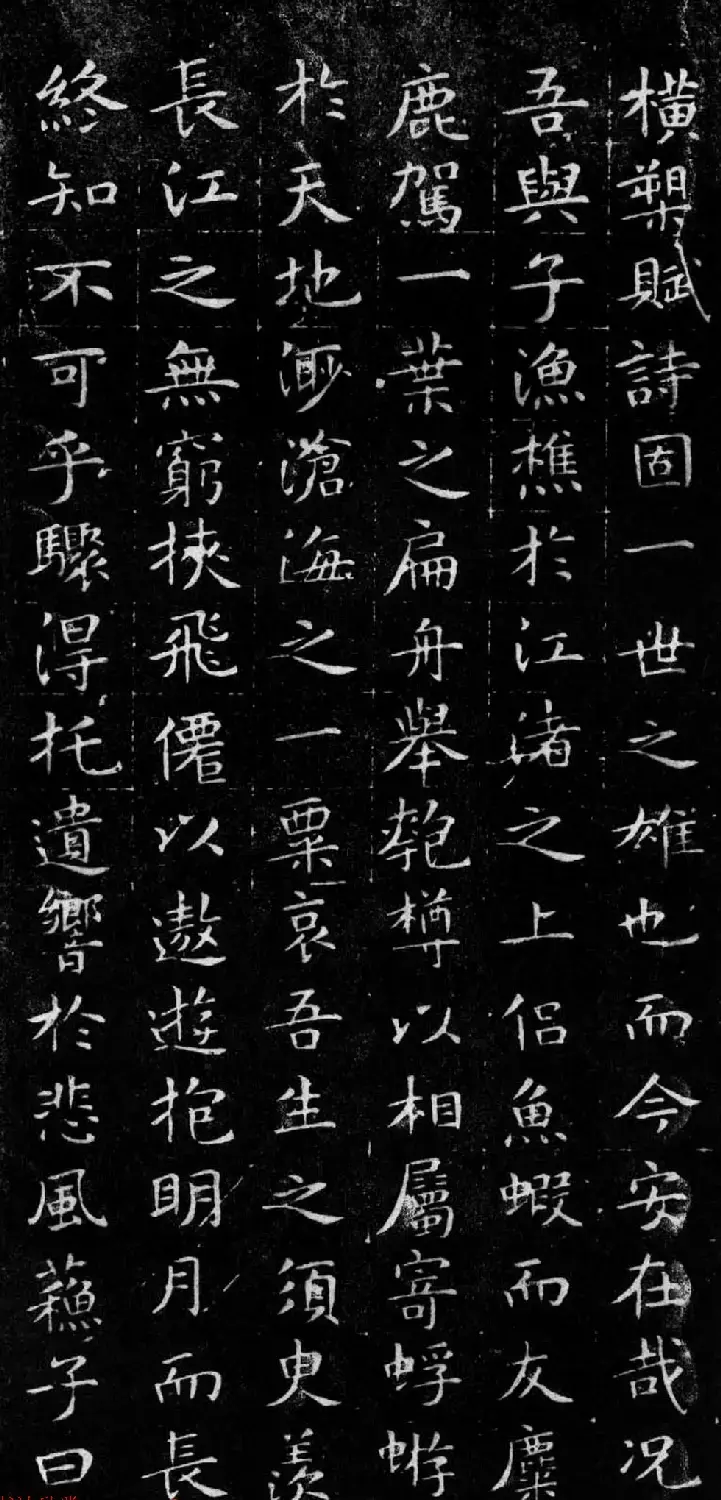 橫槊賦詩固一世之雄也而今安在哉況
吾與子漁樵於江渚之上侶魚蝦而友麋
鹿駕一葉之扁舟舉匏樽以相屬寄蜉蝣
於天地渺滄海之一粟哀吾生之須臾羨
長江之無窮挾飛僊以遨遊抱明月而長
終知不可乎驟得托遺響於悲風蘇子曰